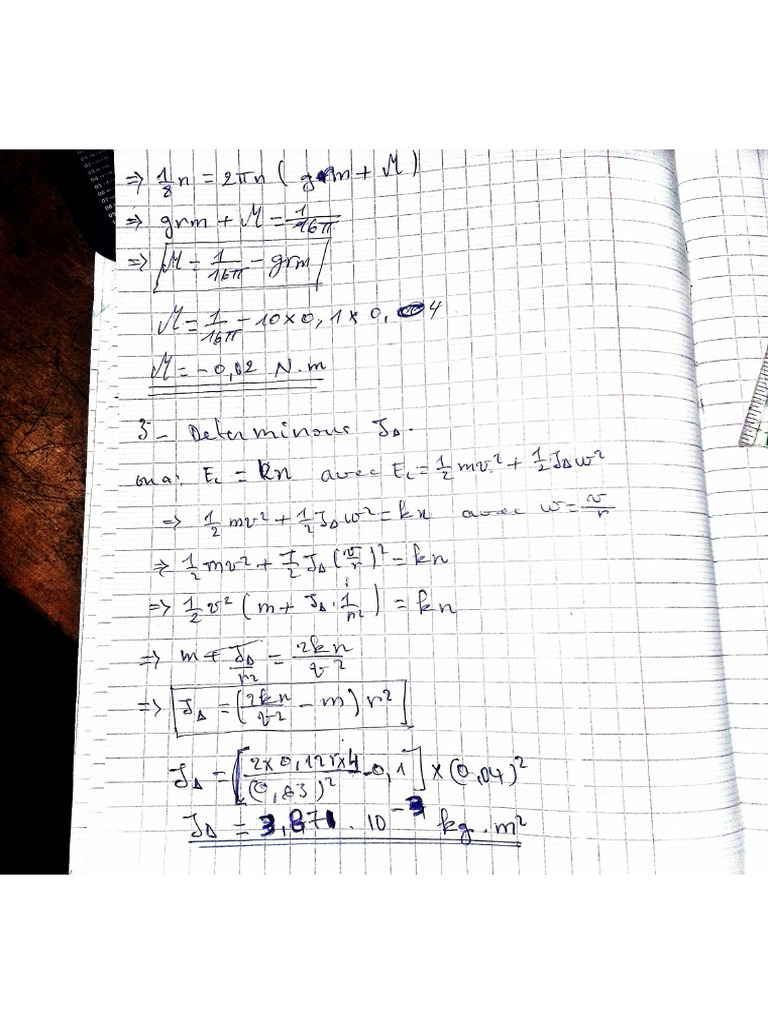 ⇒ 1/8 n = 2πn ( grm + M )
⇒ grm + M = 1/16π
⇒ M = 1/16π - grm
M = 1/16π - 10 × 0,1 × 0,04
M = -0,02 N.m
3- Determinons J∆.
on a: Ec = kn avec Ec = 1/2 mv² + 1/2 J∆ w²
⇒ 1/2 mv² + 1/2 J∆ w² = kn avec w = v/r
⇒ 1/2 mv² + 1/2 J∆ (v/r)² = kn
⇒ 1/2 v² ( m + J∆ . 1/r² ) = kn
⇒ m + J∆/r² = 2kn/v²
⇒ J∆ = ( 2kn/v² - m ) r²
J∆ = [ 2×0,125×4/(0,63)² - 0,1 ] × (0,04)²
J∆ = 3,871 . 10⁻³ kg . m²